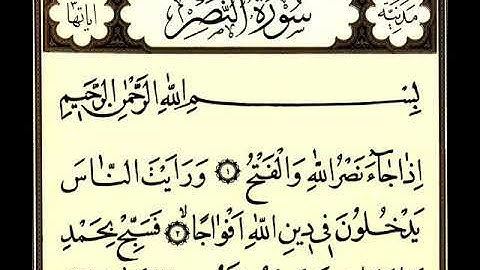 مَدَنِيَّة سُورَةُ النَّصْرِ اٰيَاتُهَا ٣
بِسْمِ اللّٰهِ الرَّحْمٰنِ الرَّحٖيمِ
اِذَا جَٓاءَ نَصْرُ اللّٰهِ وَالْفَتْحُ ۝١ وَرَاَيْتَ النَّاسَ
يَدْخُلُونَ فٖى دٖينِ اللّٰهِ اَفْوَاجًاۙ ۝٢ فَسَبِّحْ بِحَمْدِ